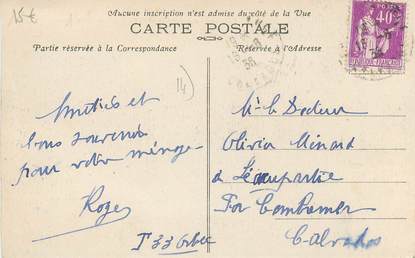 15€
Aucune inscription n'est admise du côté de la Vue
CARTE POSTALE
Partie réservée à la Correspondance
Réservée à l'Adresse
40
14)
Amitiés et
bons souvenirs
pour votre ménage
Roger
Mr le Docteur
Olivia Ménard
à Léaupartie
Par Cambremer
Calvados